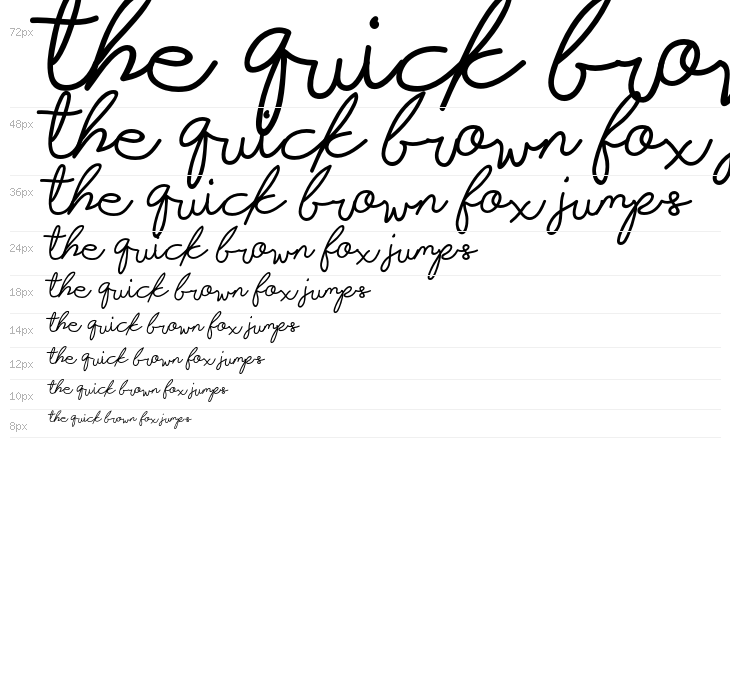 72px the quick brow
48px the quick brown fox j
36px the quick brown fox jumps
24px the quick brown fox jumps
18px the quick brown fox jumps
14px the quick brown fox jumps
12px the quick brown fox jumps
10px the quick brown fox jumps
8px the quick brown fox jumps